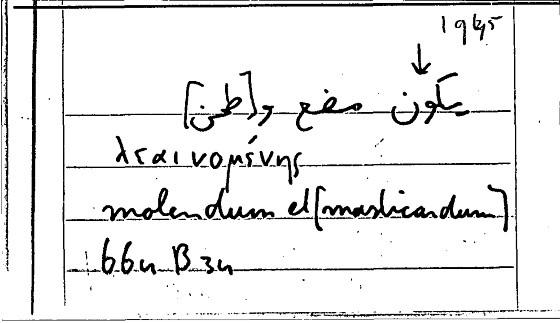 يكون مضغ و[طحن]
λεαινομένης
molendum et [masticandum]
664 B 34